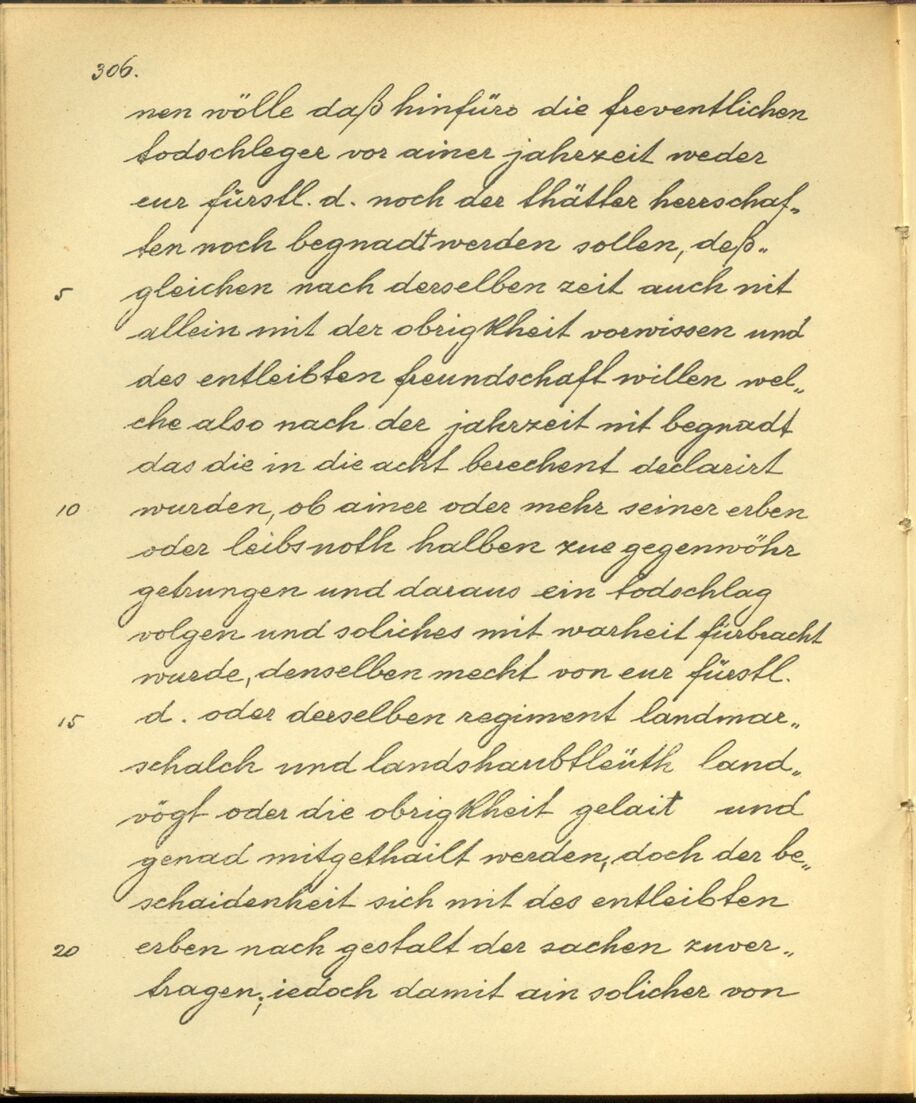 306.
nen wölle daß hinfüro die freventlichen
todschleger vor ainer jahrzeit weder
eur fürstl. d. noch der thätter herrschaf„
ten noch begnadt werden sollen, deß„
5 gleichen nach derselben zeit auch nit
allein mit der obrigkheit vorwissen und
des entleibten freundschaft willen wel„
che also nach der jahrzeit nit begnadt
das die in die acht berechent declarirt
10 wurden, ob ainer oder mehr seiner erben
oder leibsnoth halben zue gegenwöhr
getrungen und daraus ein todschlag
volgen und soliches mit warheit fürbracht
wurde, denselben mecht von eur fürstl.
15 d. oder derselben regiment landmar„
schalch und landshaubtleüth land„
vögt oder die obrigkheit gelait und
genad mitgethailt werden, doch der be„
schaidenheit sich mit des entleibten
20 erben nach gestalt der sachen zuver„
tragen; iedoch damit ain solicher von